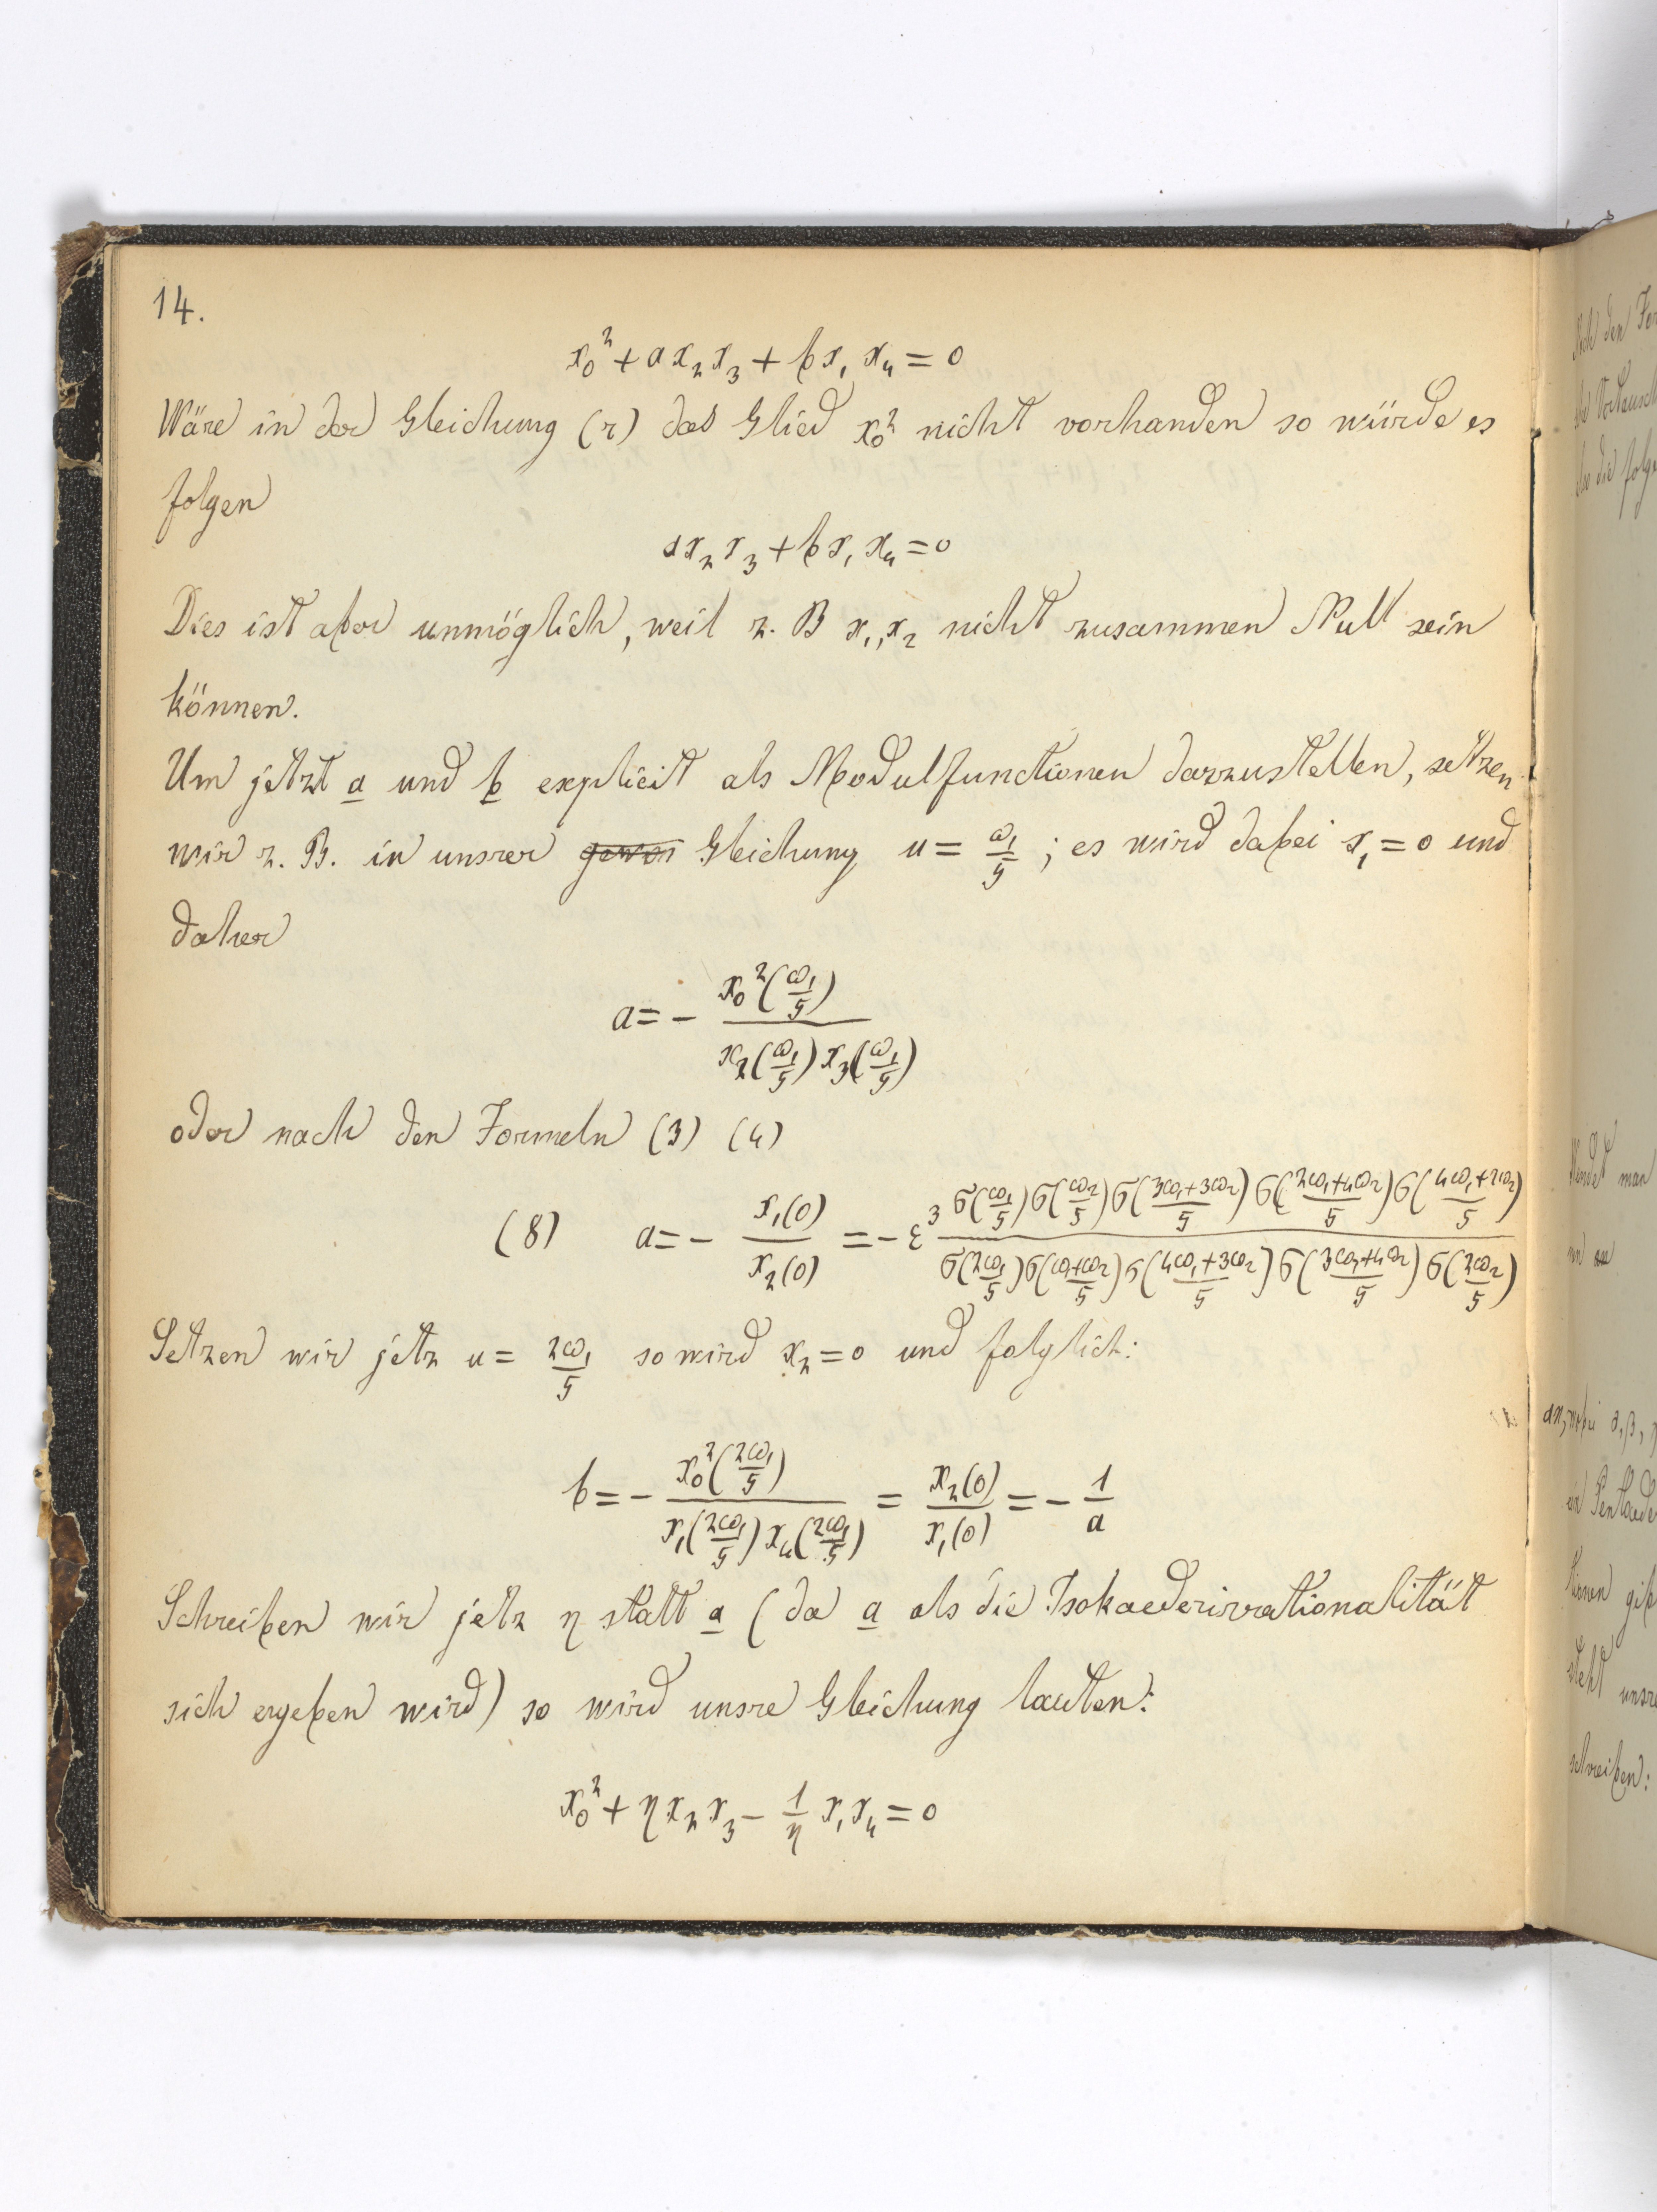 14.
x₀² + a x₂ x₃ + b x₁ x₄ = 0
Wäre in der Gleichung (r) das Glied x₀² nicht vorhanden so würde es
folgen
a x₂ x₃ + b x₁ x₄ = 0
Dies ist aber unmöglich, weil z. B x₁, x₂ nicht zusammen Null sein
können.
Um jetzt a und b explicit als Modulfunctionen darzustellen, setzen
wir z. B. in unsrer Gleichung u = ω₁/5 ; es wird dabei x₁ = 0 und
daher
a = - x₀²(ω₁/5) / x₂(ω₁/5) x₃(ω₁/5)
oder nach den Formeln (3) (4)
(8) a = - x₁(0) / x₂(0) = - ε³ σ(ω₁/5) σ(ω₂/5) σ((3ω₁+3ω₂)/5) σ((2ω₁+4ω₂)/5) σ((4ω₁+2ω₂)/5) / σ(2ω₁/5) σ((ω₁+ω₂)/5) σ((4ω₁+3ω₂)/5) σ((3ω₁+4ω₂)/5) σ(2ω₂/5)
Setzen wir jetz u = 2ω₁/5 so wird x₂ = 0 und folglich:
b = - x₀²(2ω₁/5) / x₁(2ω₁/5) x₄(2ω₁/5) = x₂(0) / x₁(0) = - 1/a
Schreiben wir jetz η statt a (da a als die Isokaederirrationalität
sich ergeben wird) so wird unsre Gleichung lauten:
x₀² + η x₂ x₃ - 1/η x₁ x₄ = 0